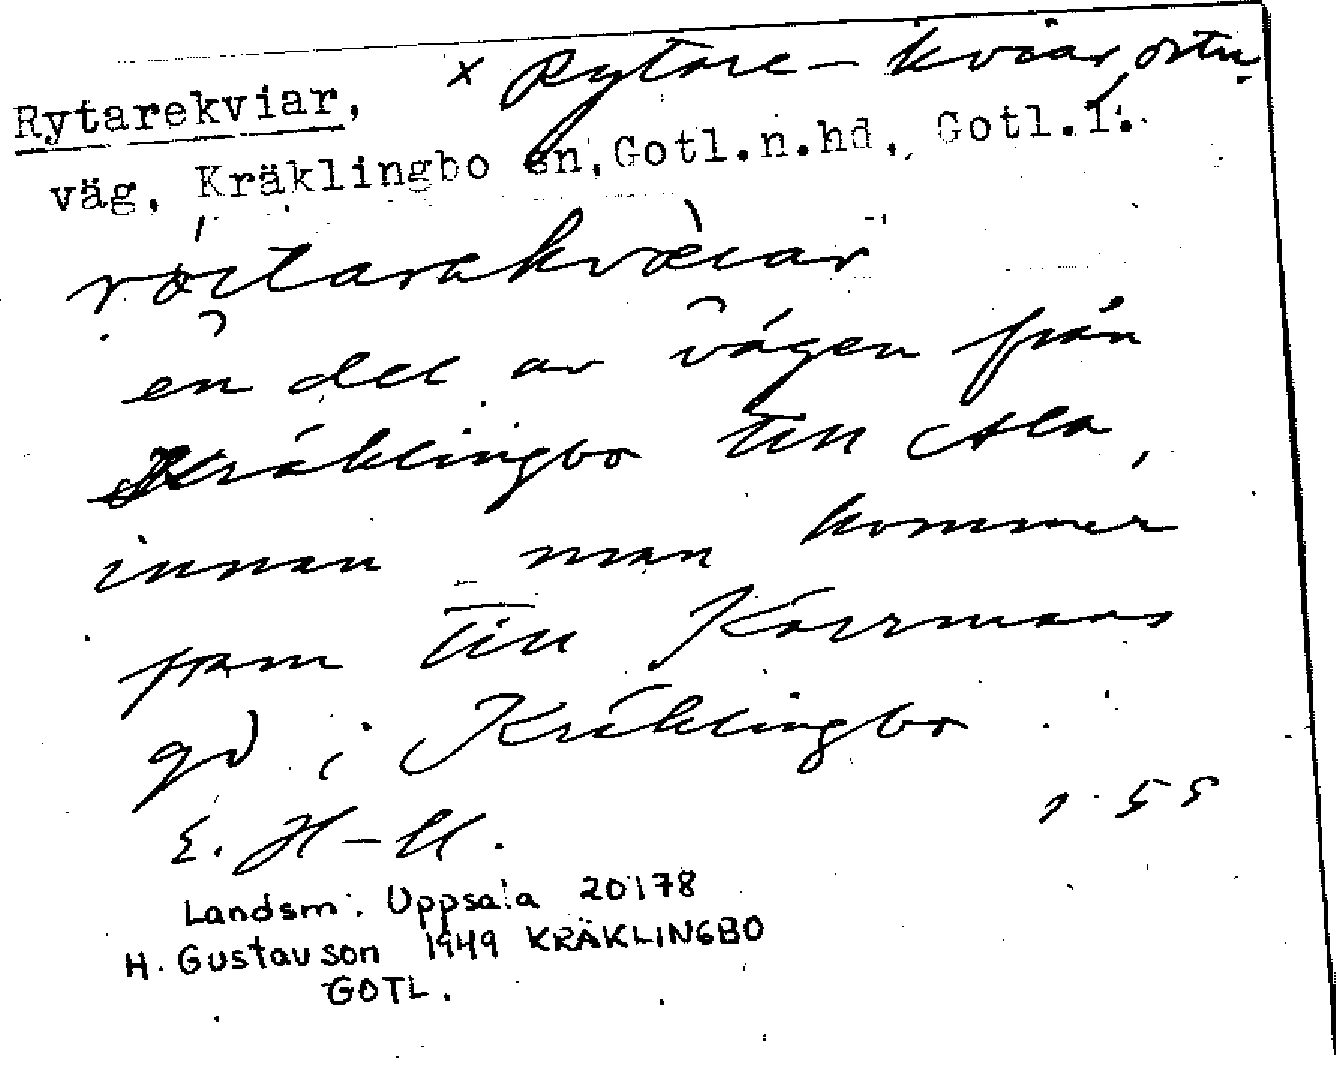 x Rytare-kviar,
Rytarekviar,
väg, Kräklingbo sn, Gotl.n.hd., Gotl.l.
en del av vägen från
Kräklingbo till Ala,
innan man kommer
fram till Kärrmans
gd i Kräklingbo
E. H-U.
Landsm. Uppsala 20178
H. Gustavson 1949 KRÄKLINGBO
GOTL.